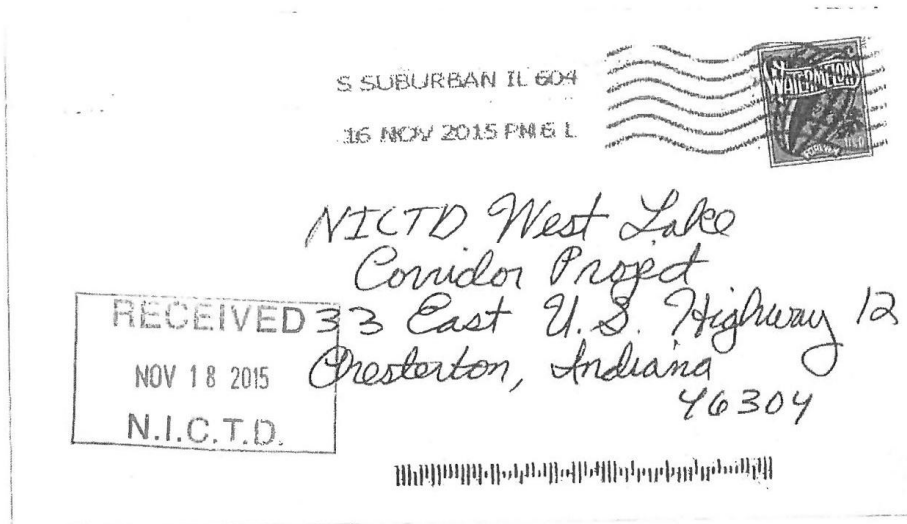 S SUBURBAN IL 604
16 NOV 2015 PM 6 L
WATERMELON
FOREVER
NICTD West Lake
Corridor Project
33 East U.S. Highway 12
Chesterton, Indiana
46304
RECEIVED
NOV 18 2015
N.I.C.T.D.